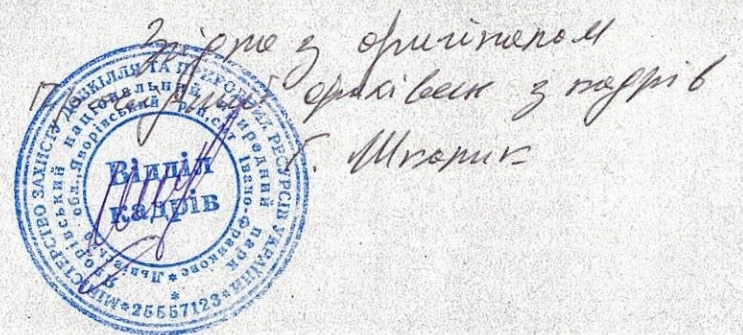 Згідно з оригіналом
Провідний фахівець з кадрів
Г. Шкорик
МІНІСТЕРСТВО ЗАХИСТУ ДОВКІЛЛЯ ТА ПРИРОДНИХ РЕСУРСІВ УКРАЇНИ
*25557123*
Яворівський національний природний парк
Львівська обл., Яворівський смт Івано-Франкове
Відділ
кадрів